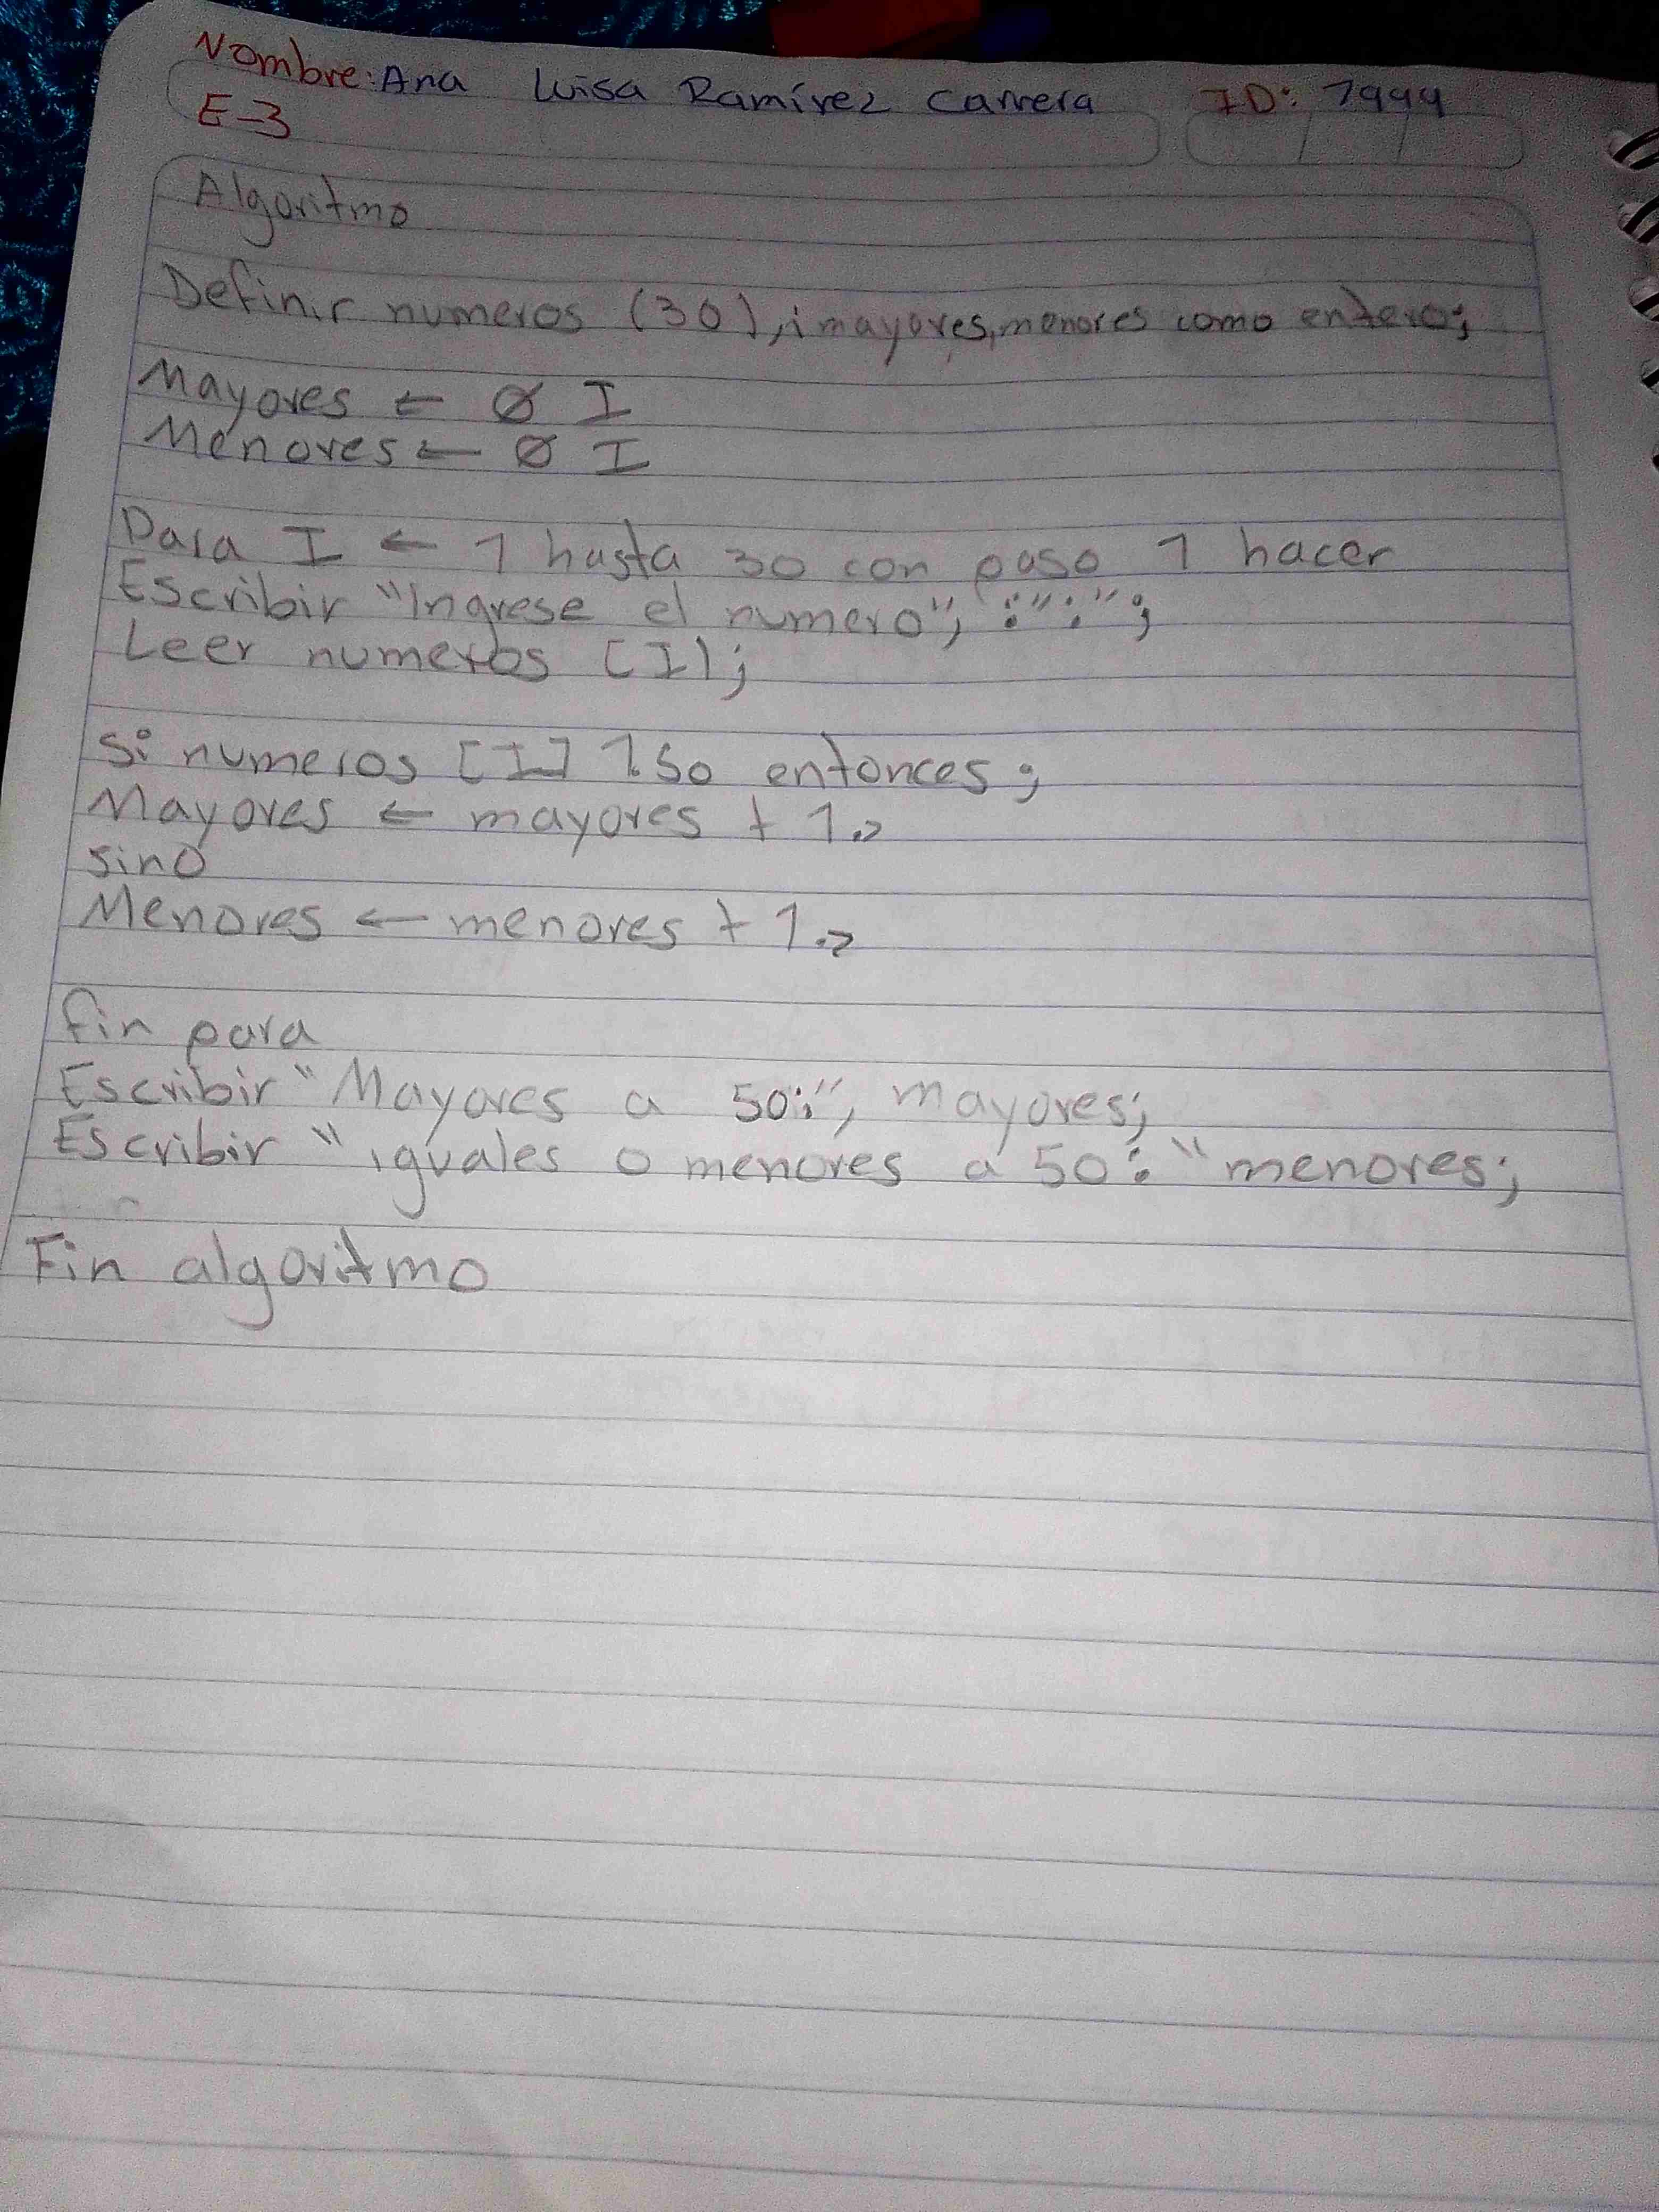 Nombre: Ana Luisa Ramírez Carrera ID: 7999
E-3
Algoritmo
Definir numeros (30), i mayores, menores como entero;
Mayores ← Ø I
Menores ← Ø I
Para I ← 1 hasta 30 con paso 1 hacer
Escribir "Ingrese el numero", :":";
Leer numeros [I];
Si numeros [I] 750 entonces;
Mayores ← mayores + 1;
sino
Menores ← menores + 1;
fin para
Escribir "Mayores a 50:", mayores;
Escribir "iguales o menores a 50: " menores;
Fin algoritmo